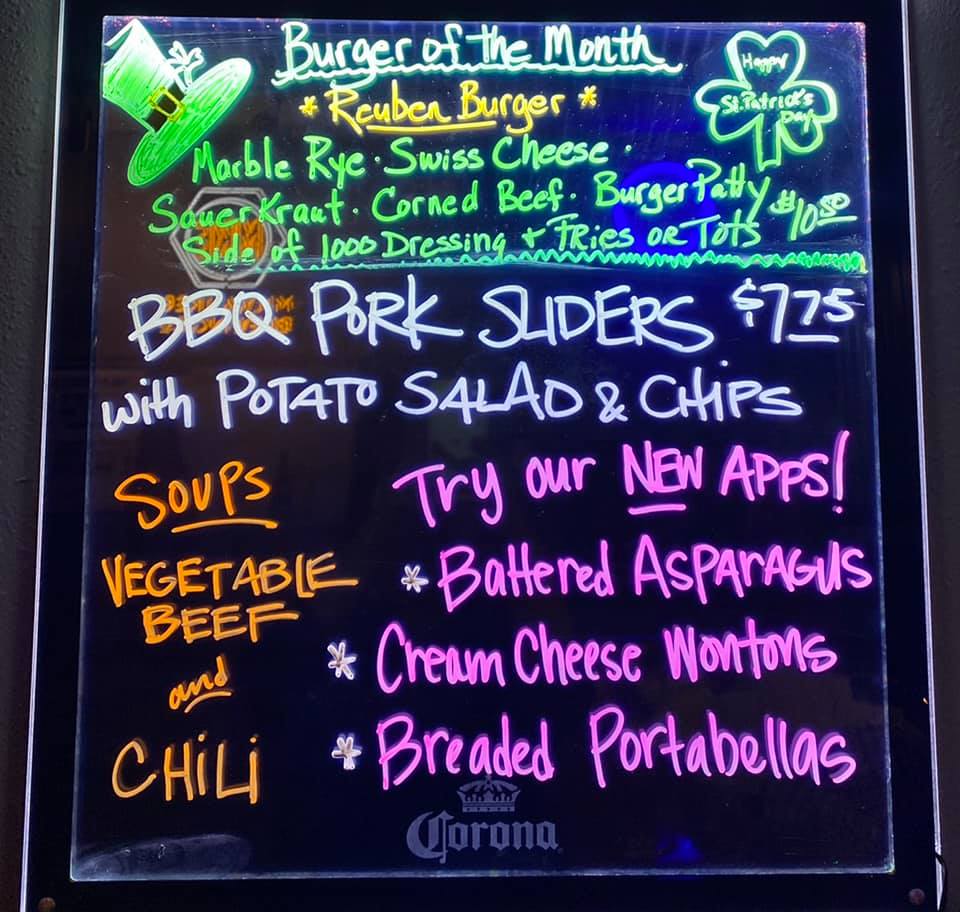 Burger of the Month
* Reuben Burger *
Happy
St. Patrick's
Day
Marble Rye · Swiss Cheese ·
SauerKraut · Corned Beef · Burger Patty
$10.50
Side of 1000 Dressing + Fries or Tots
BBQ PORK SLIDERS $7.75
with POTATO SALAD & CHiPS
Soups
VEGETABLE
BEEF
and
CHiLi
Try our NEW APPS!
* Battered ASPARAGUS
* Cream Cheese Wontons
* Breaded Portabellas
Corona